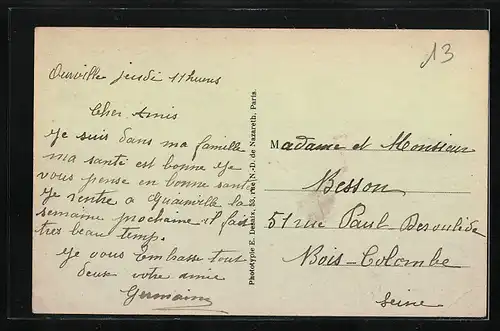 Ourville jeudi 11 heures
Cher Amis
Je suis dans ma famille
ma santé est bonne je
vous pense en bonne santé
Je rentre a la
semaine prochaine il fait
tres beau temp.
Je vous Embrasse tout
deux votre amie
Germaine
Phototypie E. Delaix, 53, rue N.-D. de Nazareth, Paris.
13
Madame et Monsieur
Besson
51 rue Paul Deroulède
Bois-Colombe
Seine